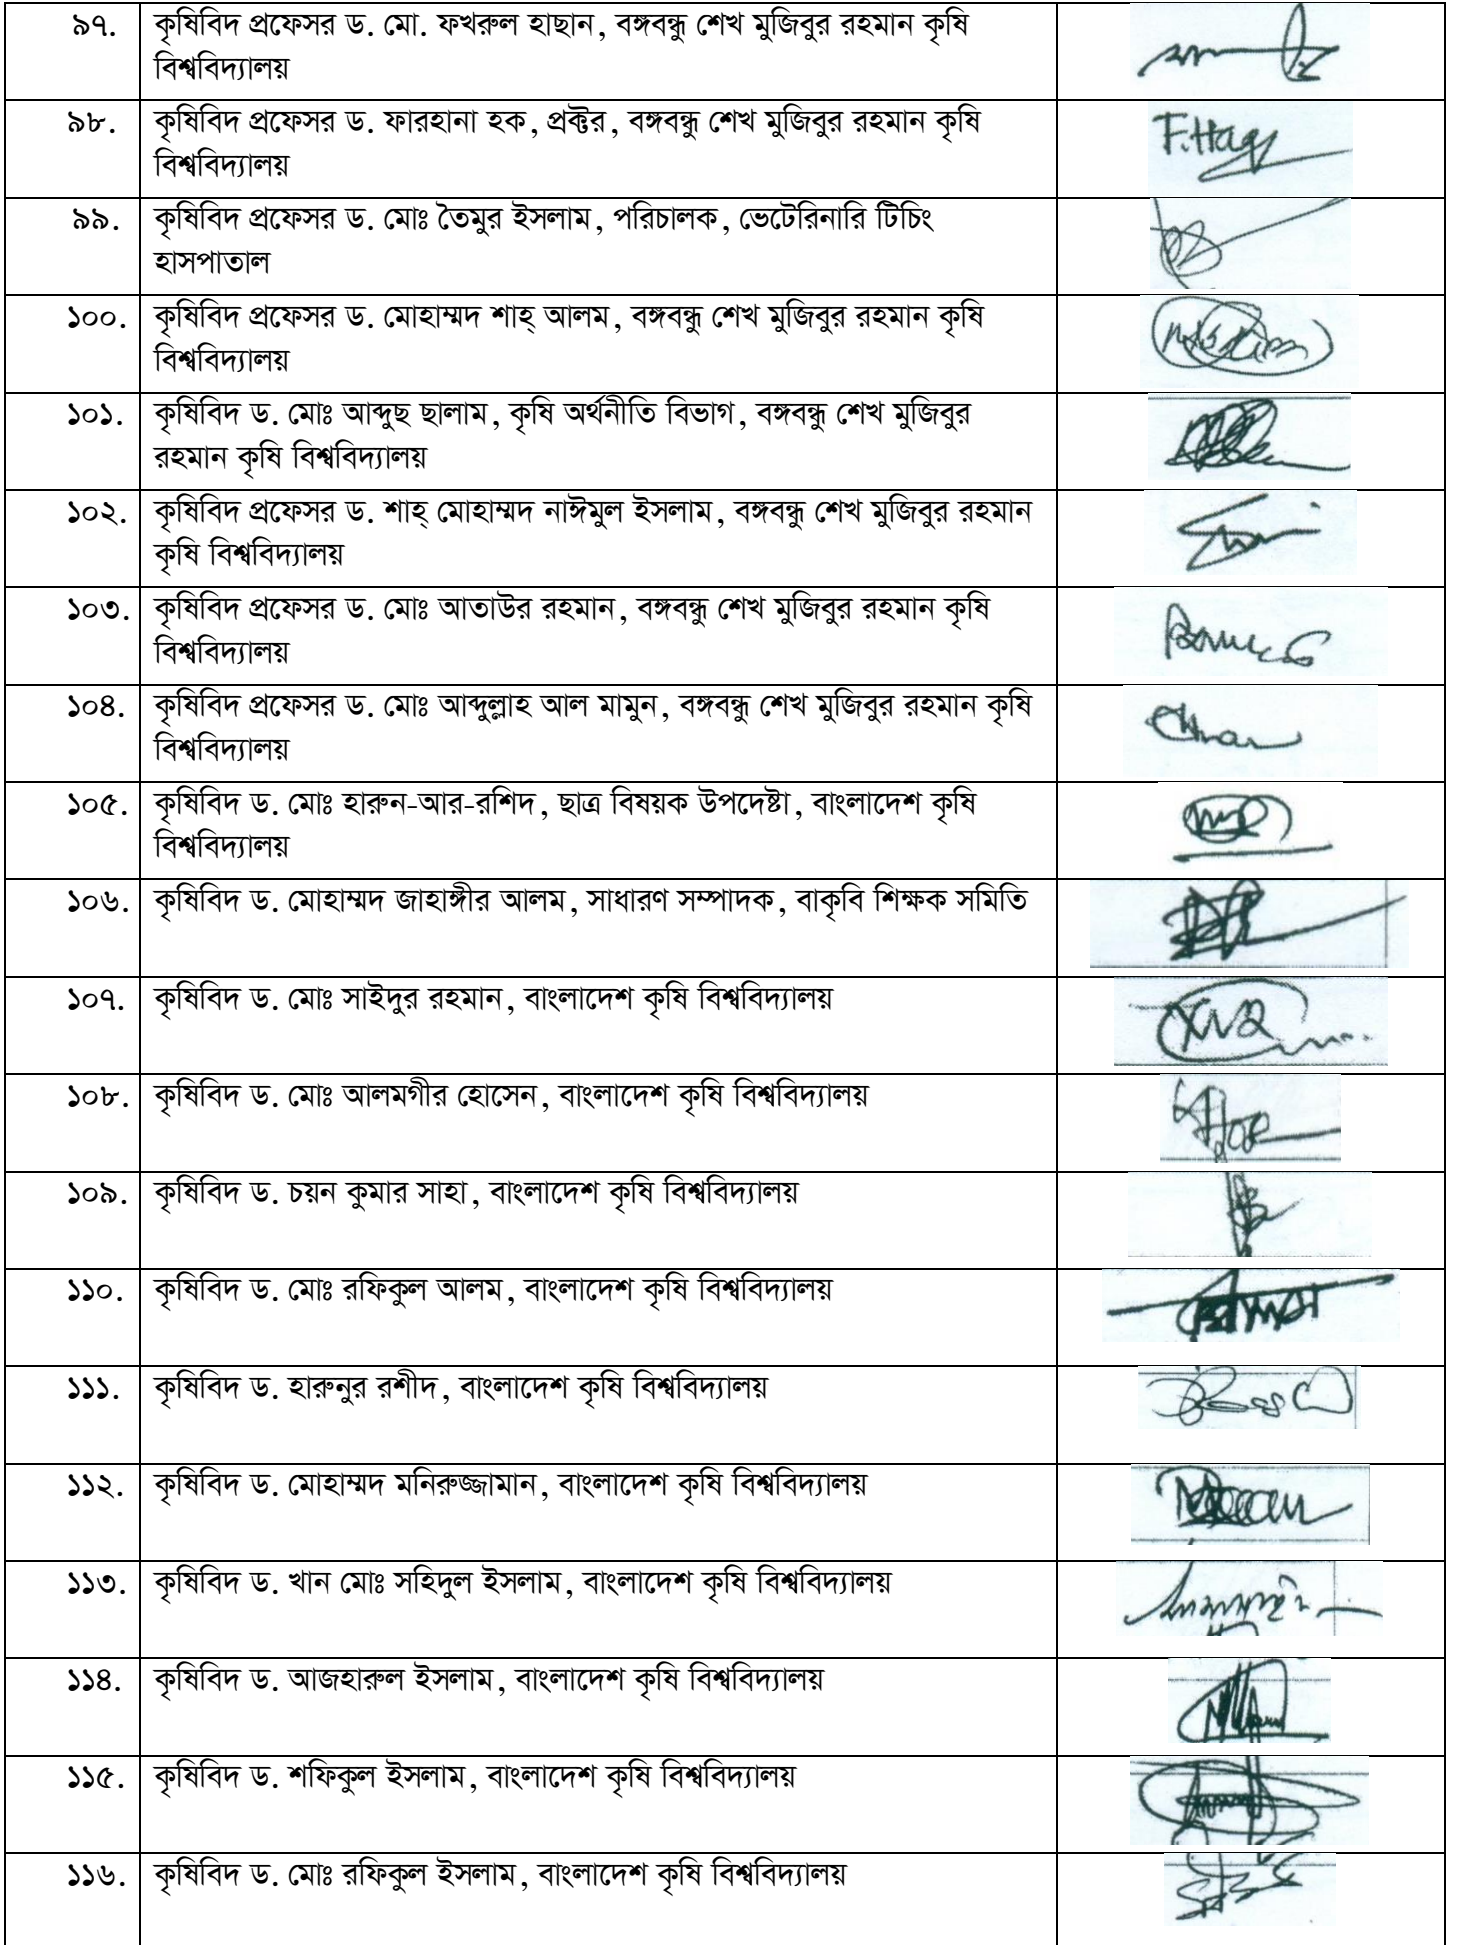 ৯৭. কৃষিবিদ প্রফেসর ড. মো. ফখরুল হাছান, বঙ্গবন্ধু শেখ মুজিবুর রহমান কৃষি
বিশ্ববিদ্যালয়
৯৮. কৃষিবিদ প্রফেসর ড. ফারহানা হক, প্রক্টর, বঙ্গবন্ধু শেখ মুজিবুর রহমান কৃষি
বিশ্ববিদ্যালয়
F.Haq
৯৯. কৃষিবিদ প্রফেসর ড. মোঃ তৈমুর ইসলাম, পরিচালক, ভেটেরিনারি টিচিং
হাসপাতাল
১০০. কৃষিবিদ প্রফেসর ড. মোহাম্মদ শাহ্ আলম, বঙ্গবন্ধু শেখ মুজিবুর রহমান কৃষি
বিশ্ববিদ্যালয়
১০১. কৃষিবিদ ড. মোঃ আব্দুছ ছালাম, কৃষি অর্থনীতি বিভাগ, বঙ্গবন্ধু শেখ মুজিবুর
রহমান কৃষি বিশ্ববিদ্যালয়
১০২. কৃষিবিদ প্রফেসর ড. শাহ্ মোহাম্মদ নাঈমুল ইসলাম, বঙ্গবন্ধু শেখ মুজিবুর রহমান
কৃষি বিশ্ববিদ্যালয়
১০৩. কৃষিবিদ প্রফেসর ড. মোঃ আতাউর রহমান, বঙ্গবন্ধু শেখ মুজিবুর রহমান কৃষি
বিশ্ববিদ্যালয়
১০৪. কৃষিবিদ প্রফেসর ড. মোঃ আব্দুল্লাহ আল মামুন, বঙ্গবন্ধু শেখ মুজিবুর রহমান কৃষি
বিশ্ববিদ্যালয়
১০৫. কৃষিবিদ ড. মোঃ হারুন-আর-রশিদ, ছাত্র বিষয়ক উপদেষ্টা, বাংলাদেশ কৃষি
বিশ্ববিদ্যালয়
১০৬. কৃষিবিদ ড. মোহাম্মদ জাহাঙ্গীর আলম, সাধারণ সম্পাদক, বাকৃবি শিক্ষক সমিতি
১০৭. কৃষিবিদ ড. মোঃ সাইদুর রহমান, বাংলাদেশ কৃষি বিশ্ববিদ্যালয়
১০৮. কৃষিবিদ ড. মোঃ আলমগীর হোসেন, বাংলাদেশ কৃষি বিশ্ববিদ্যালয়
১০৯. কৃষিবিদ ড. চয়ন কুমার সাহা, বাংলাদেশ কৃষি বিশ্ববিদ্যালয়
১১০. কৃষিবিদ ড. মোঃ রফিকুল আলম, বাংলাদেশ কৃষি বিশ্ববিদ্যালয়
১১১. কৃষিবিদ ড. হারুনুর রশীদ, বাংলাদেশ কৃষি বিশ্ববিদ্যালয়
১১২. কৃষিবিদ ড. মোহাম্মদ মনিরুজ্জামান, বাংলাদেশ কৃষি বিশ্ববিদ্যালয়
১১৩. কৃষিবিদ ড. খান মোঃ সহিদুল ইসলাম, বাংলাদেশ কৃষি বিশ্ববিদ্যালয়
১১৪. কৃষিবিদ ড. আজহারুল ইসলাম, বাংলাদেশ কৃষি বিশ্ববিদ্যালয়
১১৫. কৃষিবিদ ড. শফিকুল ইসলাম, বাংলাদেশ কৃষি বিশ্ববিদ্যালয়
১১৬. কৃষিবিদ ড. মোঃ রফিকুল ইসলাম, বাংলাদেশ কৃষি বিশ্ববিদ্যালয়